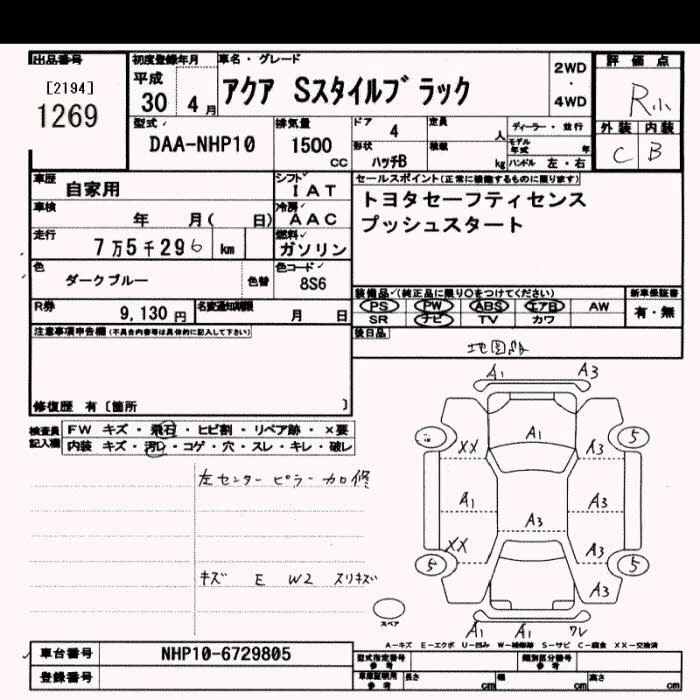 出品番号
[2194]
1269
初度登録年月
平成
30 4月
車名・グレード
アクア Sスタイルブラック
2WD
・
4WD
評価点
R小
外装 内装
C B
型式
DAA-NHP10
排気量
1500
CC
ドア
4
定員
人
形状
ハッチB
積載
kg
ディーラー・並行
モデル年式
年
ハンドル 左・右
車歴
自家用
シフト
IAT
車検
年 月( 日)
冷房
AAC
走行
7万5千296 km
燃料
ガソリン
色
ダークブルー
色替
色コード
8S6
セールスポイント(正常に機能するものに限ります)
トヨタセーフティセンス
プッシュスタート
R券
9,130 円
名変通知期限
月 日
装備品(純正品に限り○をつけてください)
PS PW ABS エアB AW
SR ナビ TV カワ
新車保証書
有・無
後日品
注意事項申告欄(不具合内容等は具体的に記入して下さい)
修復歴 有〔箇所 〕
検査員
記入欄
FW キズ・飛石・ヒビ割・リペア跡・×要
内装 キズ・汚レ・コゲ・穴・スレ・キレ・破レ
左センターピラー加修
キズ E W2 スリキズ
A1 A3
A1
XX A3
5
A1 A3
A3
XX A3
5 5
A3
スペア
A1 A1 ワレ
A-キズ E-エクボ U-凹み W-補修跡 S-サビ C-腐食 XX-交換済
車台番号
NHP10-6729805
登録番号
型式指定番号
参考
類別区分番号
参考
車庫証明用
参考
長さ cm
幅 cm
高さ cm